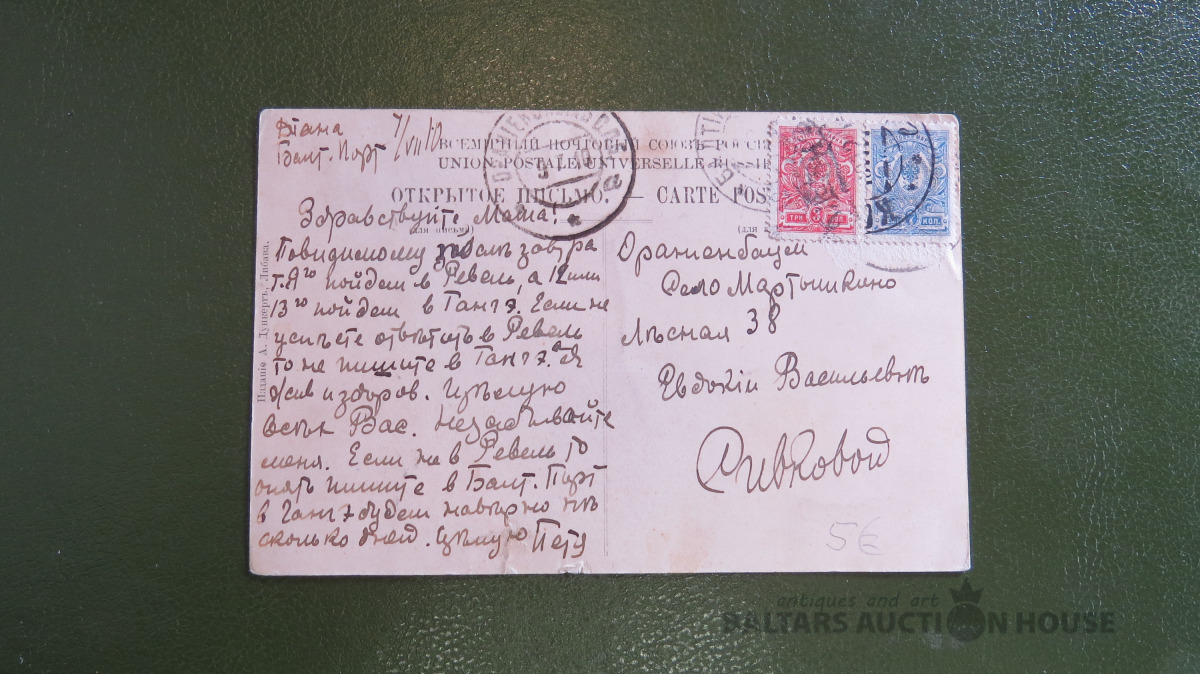 Діана
Балт. Порт
7/VII 12
ВСЕМІРНЫЙ ПОЧТОВЫЙ СОЮЗЪ РОССІ
UNION POSTALE UNIVERSELLE RUSSIE
ОТКРЫТОЕ ПИСЬМО. — CARTE POS
Здравствуйте Маша!
Повидимому завтра
пойдем в Ревель, а 12 или
13го пойдем в Гангэ. Если не
успѣете отвѣтить в Ревель
то не пишите в Гангэ. Я
жив и здоров. Цѣлую
всѣх Вас. Незабывайте
меня. Если не в Ревель то
опять пишите в Балт. Порт
в Гангэ будем навѣрно нѣ
сколько дней. Цѣлую Петя
Изданіе А. Дункертъ, Либава.
ТРИ 3 КОП.
7 КОП.
Ораніенбаум
Село Мартышкино
Лѣсная 38
Евдокіи Васильевнѣ
Сивковой
5€
antiques and art
BALTARS AUCTION HOUSE